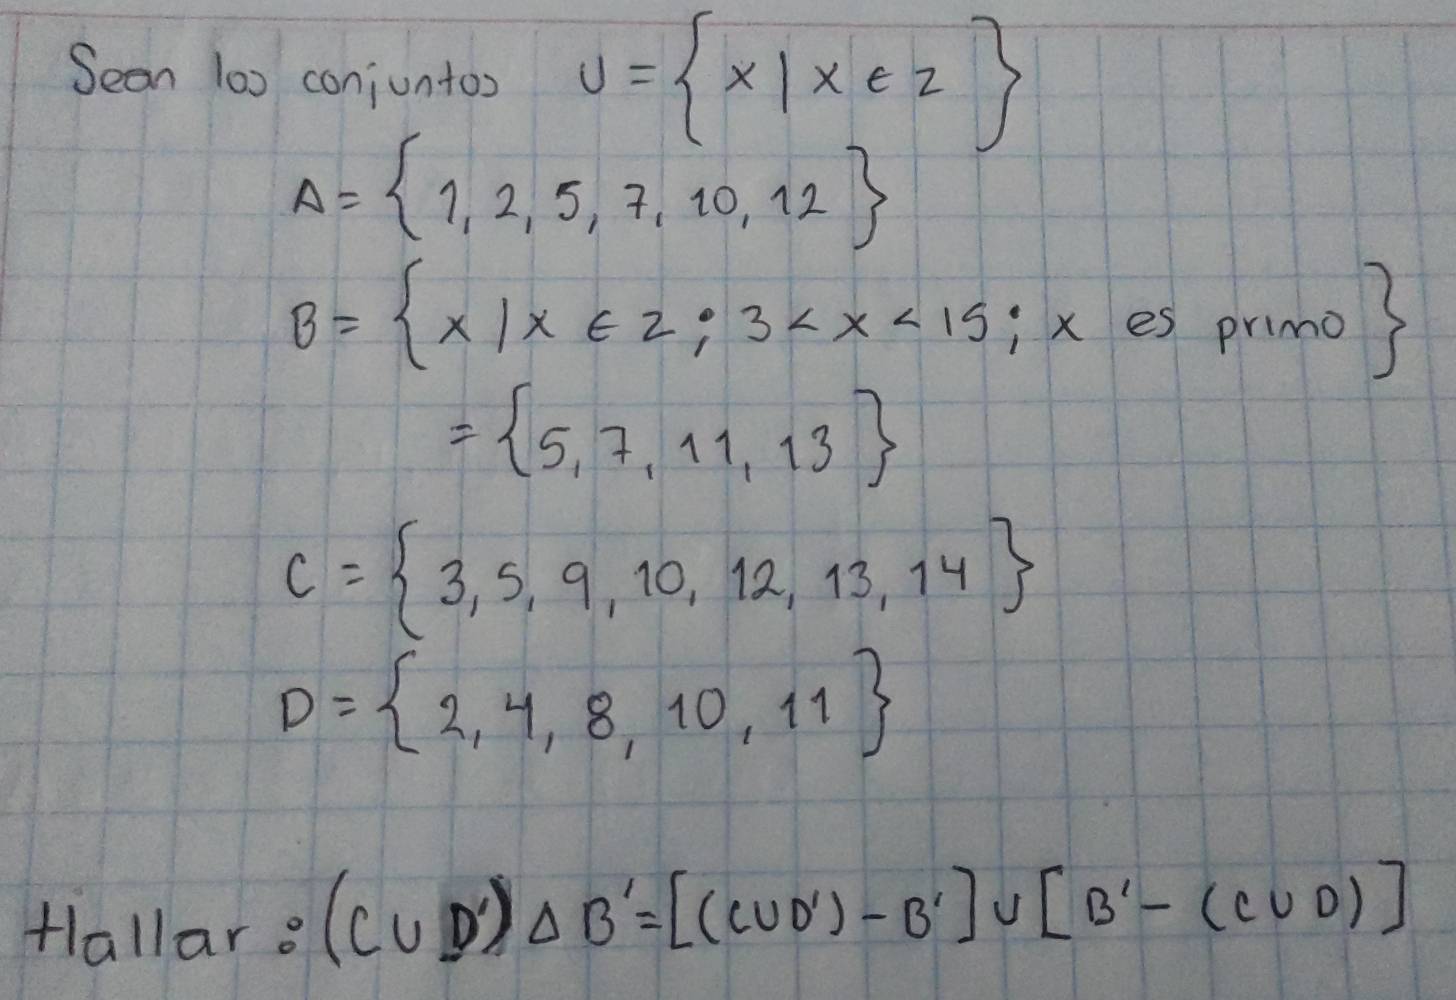 Sean los conjuntos U = { x | x ∈ z }
A = { 1, 2, 5, 7, 10, 12 }
B = { x | x ∈ z ; 3 < x < 15 ; x es primo }
= { 5, 7, 11, 13 }
C = { 3, 5, 9, 10, 12, 13, 14 }
D = { 2, 4, 8, 10, 11 }
Hallar : (C ∪ D') Δ B' = [(C∪D') - B'] ∪ [B' - (C∪D)]